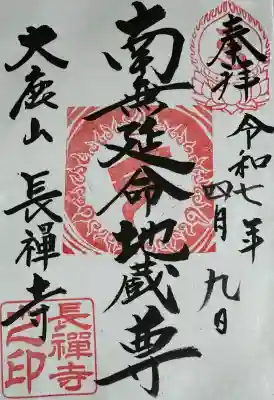 奉拝
令和七年
四月九日
南無延命地蔵尊
大鹿山 長禅寺
長禪寺之印